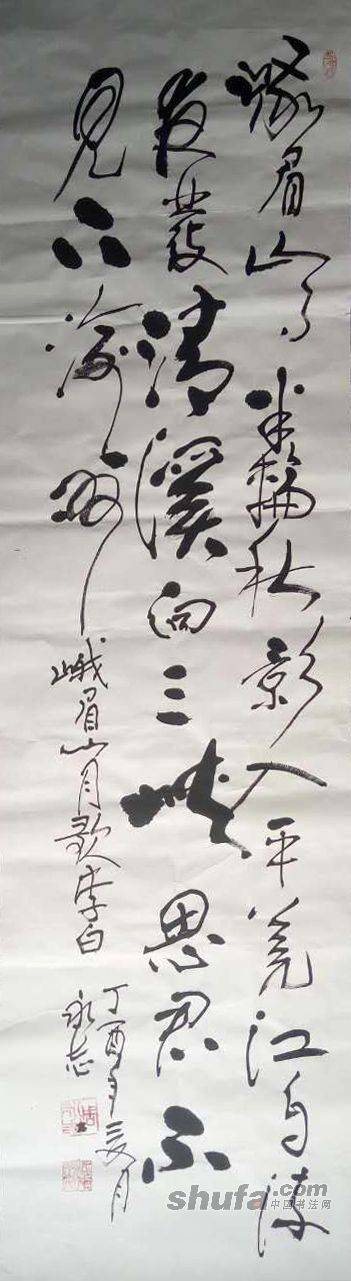 峨眉山月半輪秋影入平羌江水流
夜發清溪向三峡思君不
見下渝州
峨眉山月歌李白
丁酉年夏月
永志
shufa.com
中国书法网